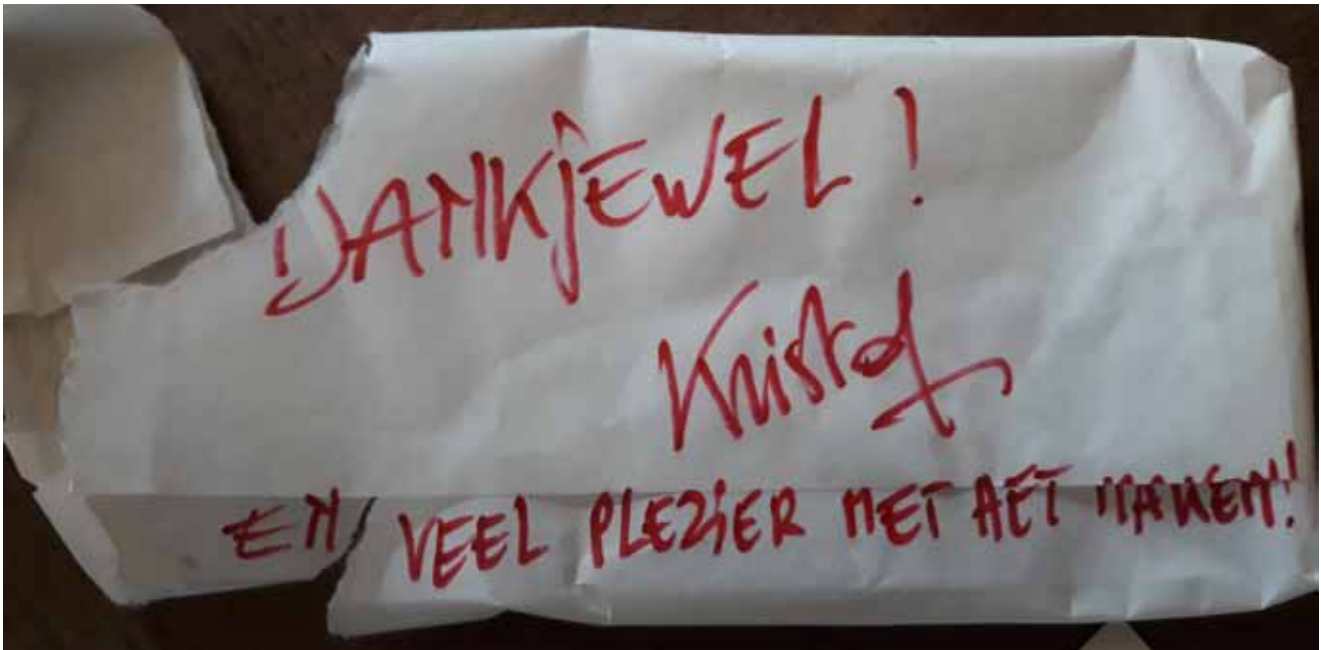 DANKJEWEL!
Kristof
EN VEEL PLEZIER MET HET MAKEN!